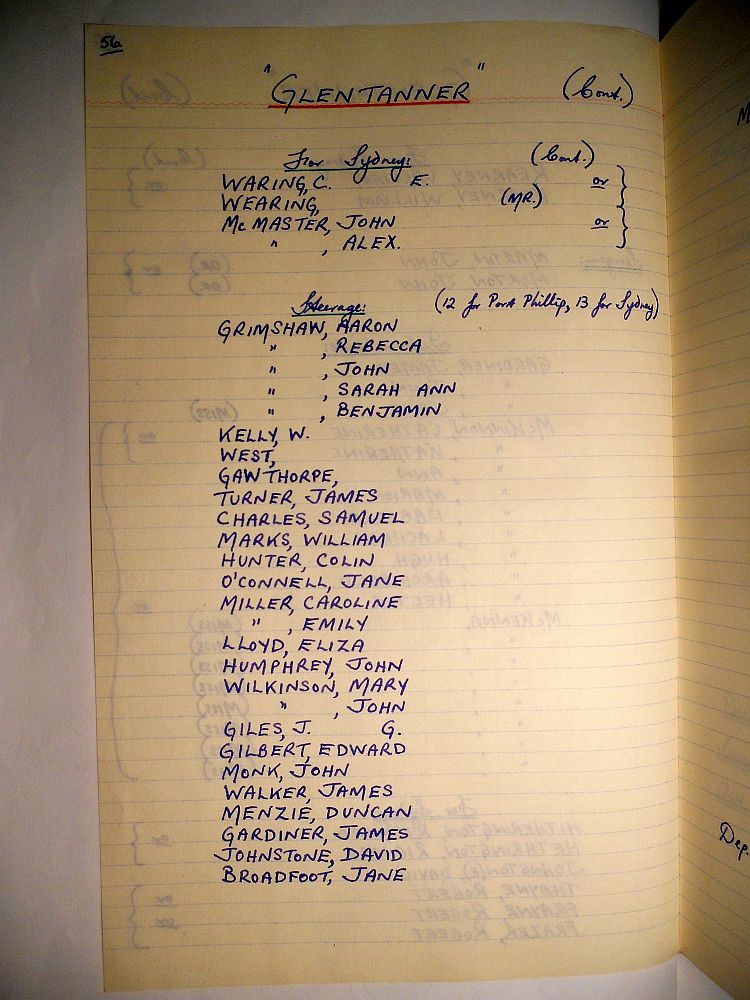 56
"GLENTANNER" (Cont.)
For Sydney: (Cont.)
WARING, C. E. or }
WEARING, (MR.)
McMASTER, JOHN or }
" , ALEX.
Steerage: (12 for Port Phillip, 13 for Sydney)
GRIMSHAW, AARON
" , REBECCA
" , JOHN
" , SARAH ANN
" , BENJAMIN
KELLY, W.
WEST,
GAWTHORPE,
TURNER, JAMES
CHARLES, SAMUEL
MARKS, WILLIAM
HUNTER, COLIN
O'CONNELL, JANE
MILLER, CAROLINE
" , EMILY
LLOYD, ELIZA
HUMPHREY, JOHN
WILKINSON, MARY
" , JOHN
GILES, J. G.
GILBERT, EDWARD
MONK, JOHN
WALKER, JAMES
MENZIE, DUNCAN
GARDINER, JAMES
JOHNSTONE, DAVID
BROADFOOT, JANE
Dep.